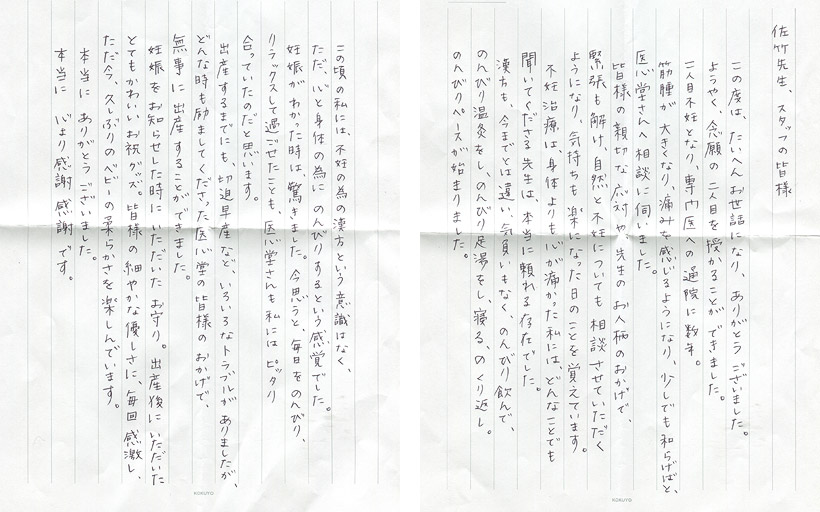 佐竹先生、スタッフの皆様
この度は、たいへんお世話になり、ありがとうございました。
ようやく、念願の二人目を授かることができました。
二人目不妊となり、専門医への通院に数年。
筋腫が大きくなり、痛みを感じるようになり、少しでも和らげばと、
医心堂さんへ相談に伺いました。
皆様の親切な応対や、先生のお人柄のおかげで、
緊張も解け、自然と不妊についても相談させていただく
ようになり、気持ちも楽になった日のことを覚えています。
不妊治療は、身体よりも心が痛かった私には、どんなことでも
聞いてくださる先生は、本当に頼れる存在でした。
漢方も、今までとは違い、気負いもなく、のんびり飲んで、
のんびり温灸をし、のんびり足湯をし、寝る、のくり返し。
のんびりペースが始まりました。
この頃の私には、不妊の為の漢方という意識はなく、
ただ、心と身体の為にのんびりするという感覚でした。
妊娠がわかった時は、驚きました。今思うと、毎日をのんびり、
リラックスして過ごせたことも、医心堂さんも私にはピッタリ
合っていたのだと思います。
出産するまでにも、切迫早産など、いろいろなトラブルがありましたが、
どんな時も励ましてくださった医心堂の皆様のおかげで、
無事に出産することができました。
妊娠をお知らせした時にいただいたお守り。出産後にいただいた
とてもかわいいお祝グッズ。皆様の細やかな優しさに、毎回感激し、
ただ今、久しぶりのベビーの柔らかさを楽しんでいます。
本当にありがとうございました。
本当に 心より感謝 感謝 です。
KOKUYO
KOKUYO